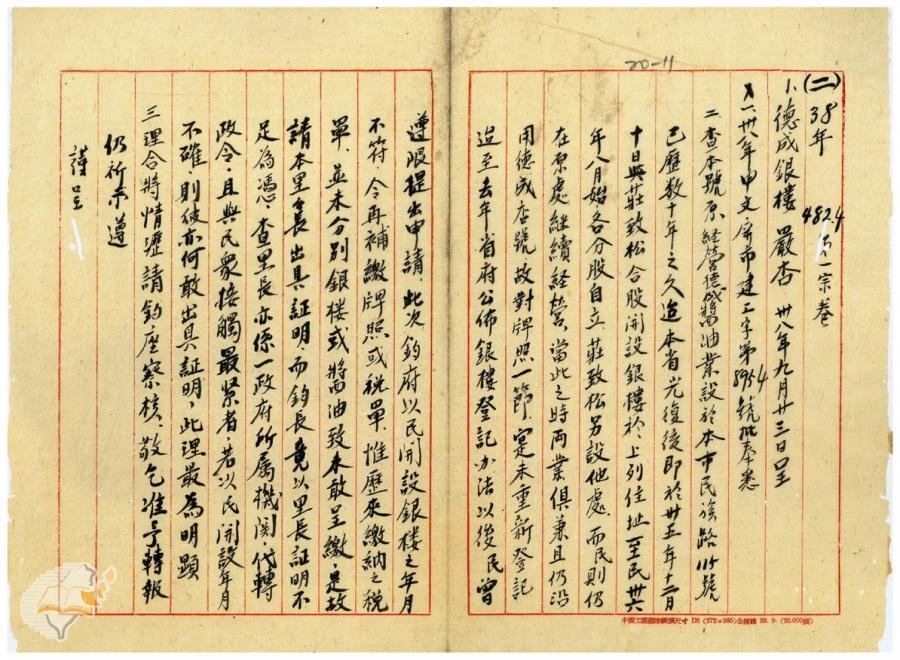 20-11
(二) 38年 482.4 一宗卷
1.德成銀樓 嚴杏 卅八年九月廿三日呈
一、卅八年申文府市建工字第8954號批奉悉
二、查本號原經營德成醬油業設於本市民族路115號
已歷数十年之久迨本省光復後即於卅五年十二月
十日與莊致松合股開設銀樓於上列住址一至民卅六
年八月始各分股自立、莊致松另設他處、而民則仍
在原處継續经营、當此之時两業俱兼且仍沿
用德成店號、故對牌照一節、寔未重新登記
迨至去年省府公佈銀楼登記办法以後民曾
遵限提出申請、此次鈞府以民開設銀楼之年月
不符、令再補繳牌照或稅單、惟歷來繳納之税
單、並未分别銀楼或醬油致未敢呈繳、是故
請本里里長出具証明、而鈞長竟以里長証明不
足為憑、查里長亦係一政府所属機関、代轉
政令、且與民眾接觸最緊者、若以民開設年月
不確、則彼亦何敢出具証明、此理最為明顕
三、理合將情瀝請鈞座察核、敬乞准予轉報
仍祈示遵
謹呈
中國工業標準紙張尺寸 D3 (272×385)公厘 39. 9. (20.000張)